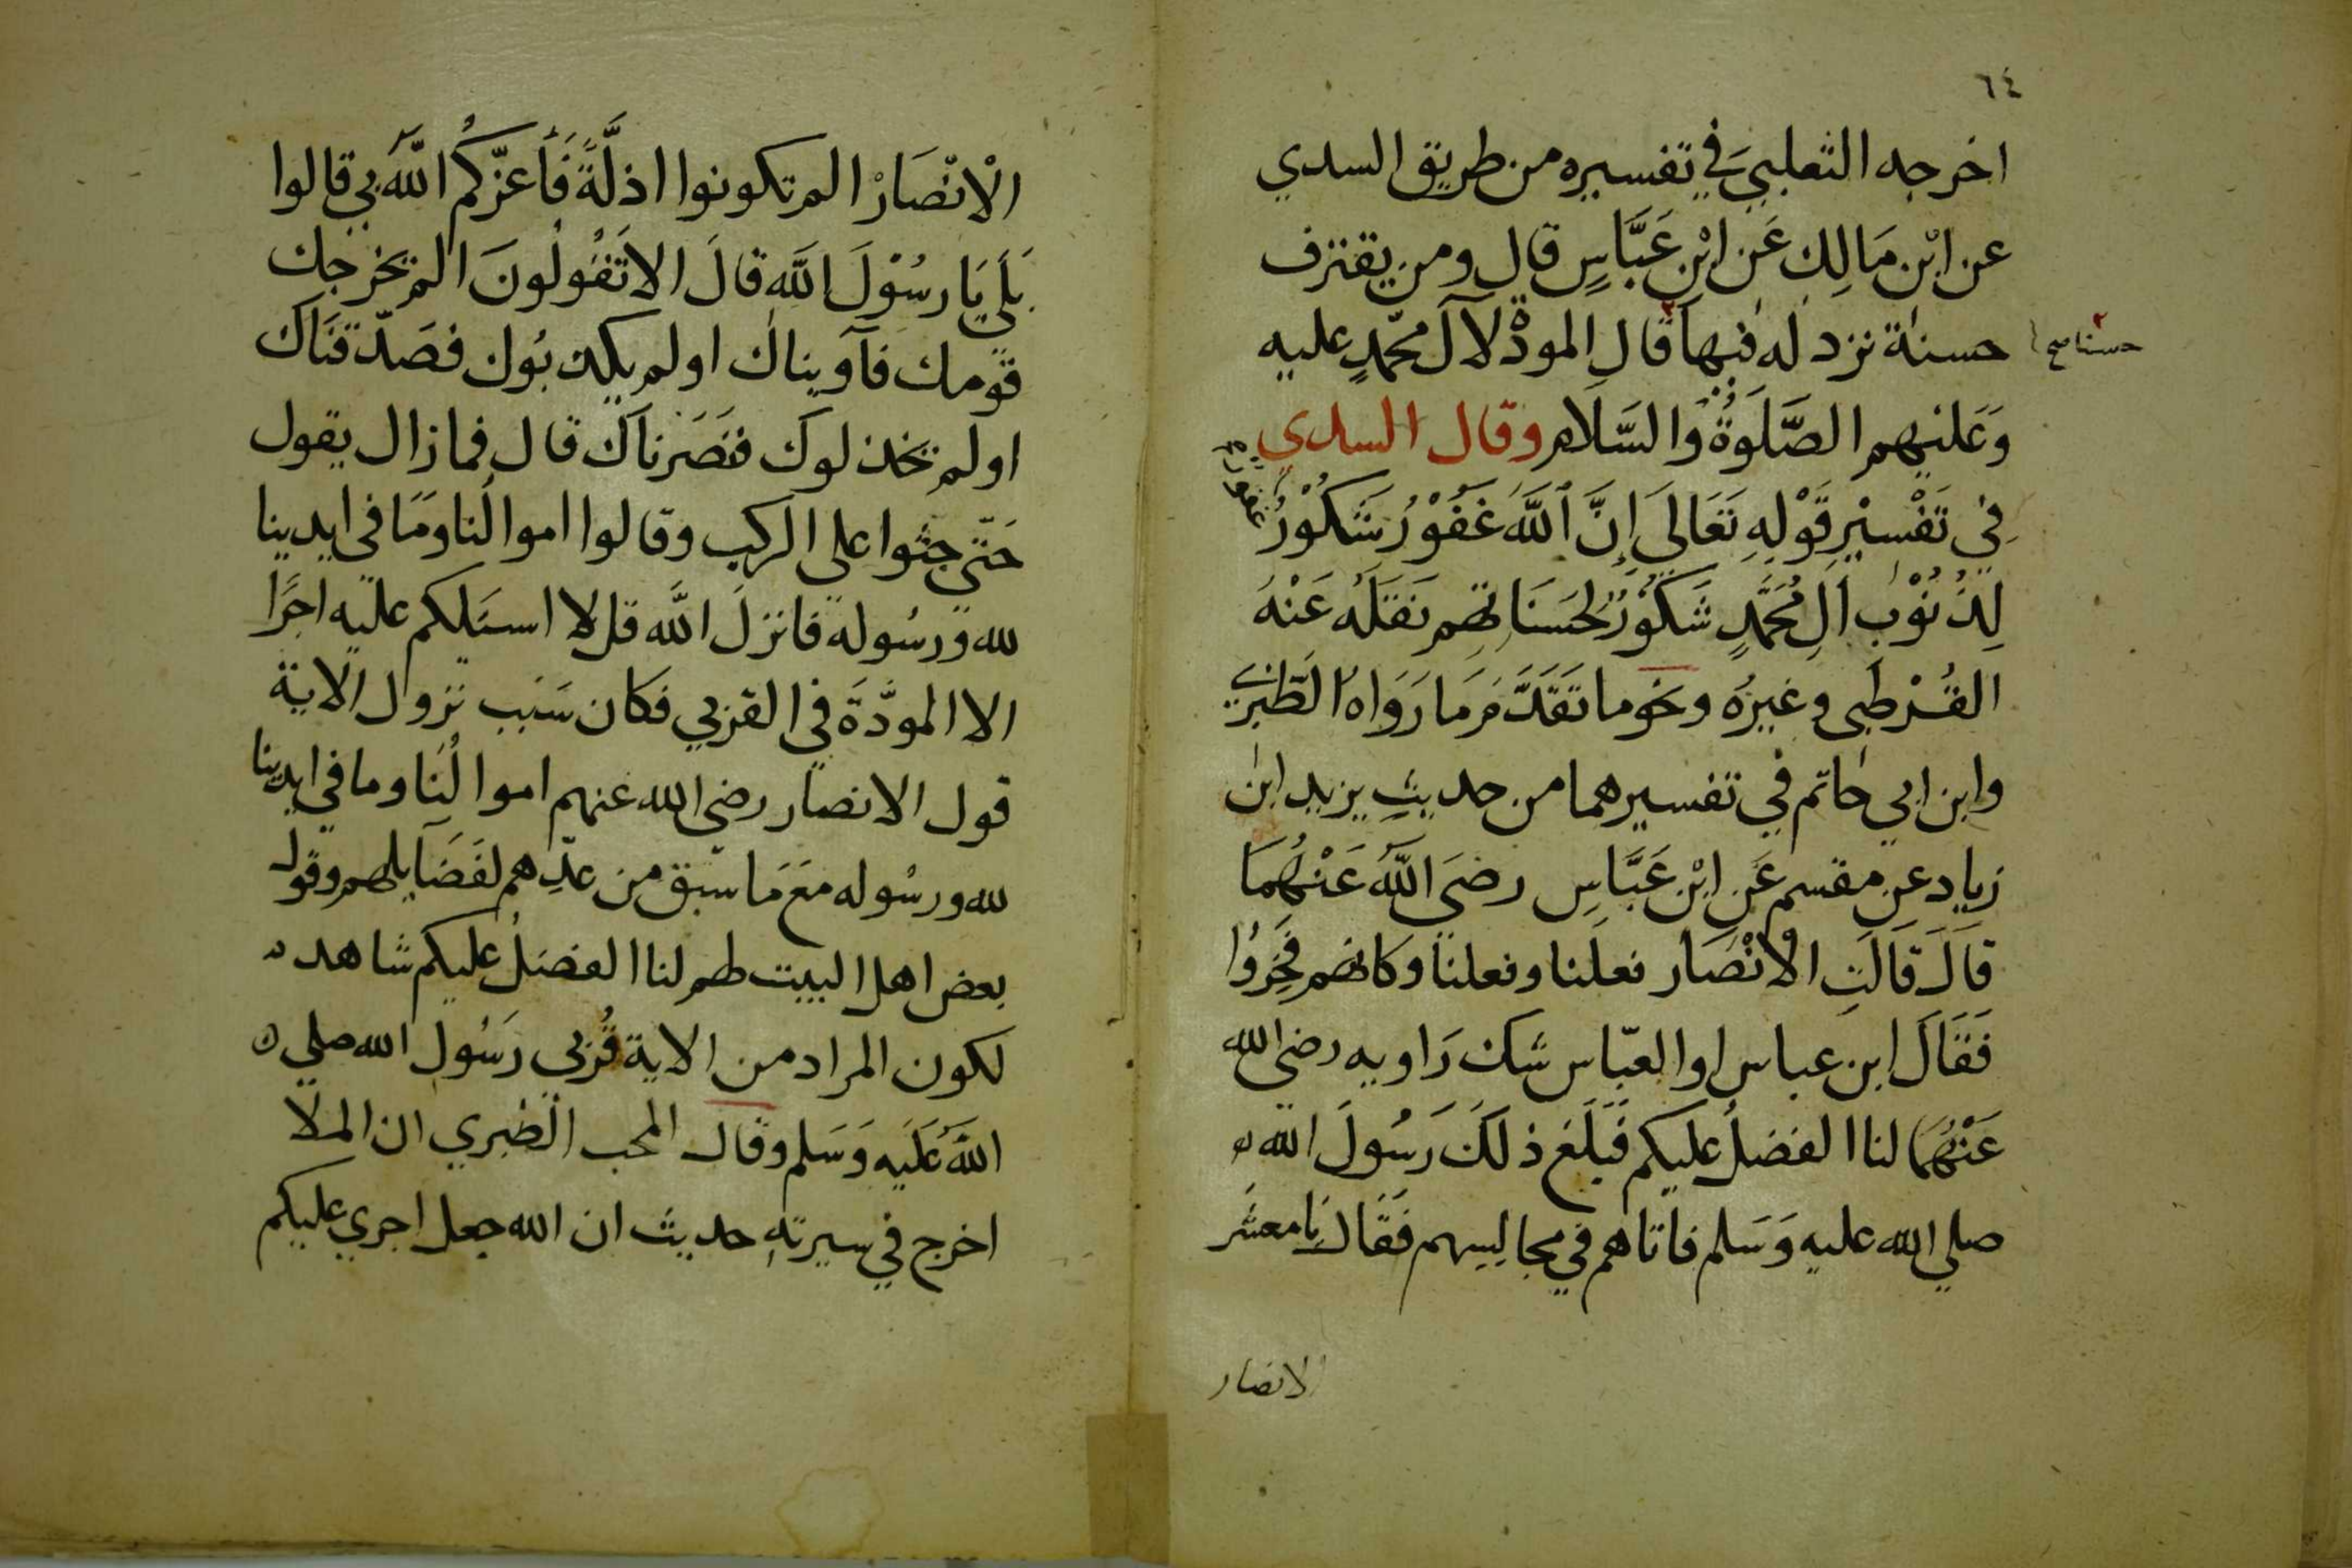 ٦٤
اخرجه الثعلبي في تفسيره من طريق السدي
عن ابْن مَالِك عَن ابْنِ عَبَّاسٍ قال ومن يقترف
حسنة نزد له فيها قال المودّة لآل محمّدٍ عليه
حسنا صح
وَعَليهم الصَّلَوةُ وَالسَّلَام وقال السدي
فِي تَفْسيْرِ قَوْلِهِ تَعَالَي إِنَّ اللَّهَ غَفُوْرٌ شَكُوْرٌ
غفور
لِذُنُوْبِ آلِ مُحَمَّدٍ شَكُوْرٌ لِحَسَنَاتِهِم نَقَلَهُ عَنْهُ
القُرْطبي وغيرُه ونحو ما تقَدَّمَ مَا رَوَاهُ الطَّبَرِيّ
وابن ابي حاتم في تفسيرهما من حديثِ يزيد ابن
زياد عن مقسم عَنِ ابْنِ عَبَّاسٍ رضيَ اللَّهُ عَنْهُمَا
قَالَ قَالَتِ الْانْصَار فعلنا وفعلنا وكانهم فَخِرُوا
فَقَالَ ابن عباس او العبّاس شك رَاويه رضي الله
عَنْهُمَا لنا الفضلُ عليكم فَبَلَغ ذلكَ رَسُولَ الله
صلي الله عليه وَسَلم فاتاهم في مجالِسِهم فَقَالَ يَا معشر
الانصار
الْانْصَارْ الم تكونوا اذلَّةً فَأَعزّكُم اللَّهُ بي قالوا
بَلَي يَا رسُوْلَ اللَّهِ قالَ الا تَقُولُونَ الم يخرجك
قومك فآويناك اولم يكذبُوك فصَدّقنَاك
اولم يخذلوك فنَصَرناك قال فمازال يقول
حَتّي جثوا علي الركب وقالوا اموالنا ومَا في ايدينا
لله ورسُوله فانزلَ اللَّه قل لا اسئلكم عليه اجرًا
الا المودَّةَ في القربي فكان سَبب نزول الاية
قول الانصار رضي الله عنهم اموالُنَا وما في ايدينا
لله ورسُوله معَ مَا سبق من عدِّهم لفَضَايلهم وقول
بعض اهل البيت لهم لنا الفضلُ عليكم شاهد
لكون المراد من الاية قُربي رَسُول الله صلي
اللَّهُ عَلَيه وَسَلم وقال المحب الطبري ان الملا
اخرج في سيرتهِ حديث ان الله جعل اجري عليكم